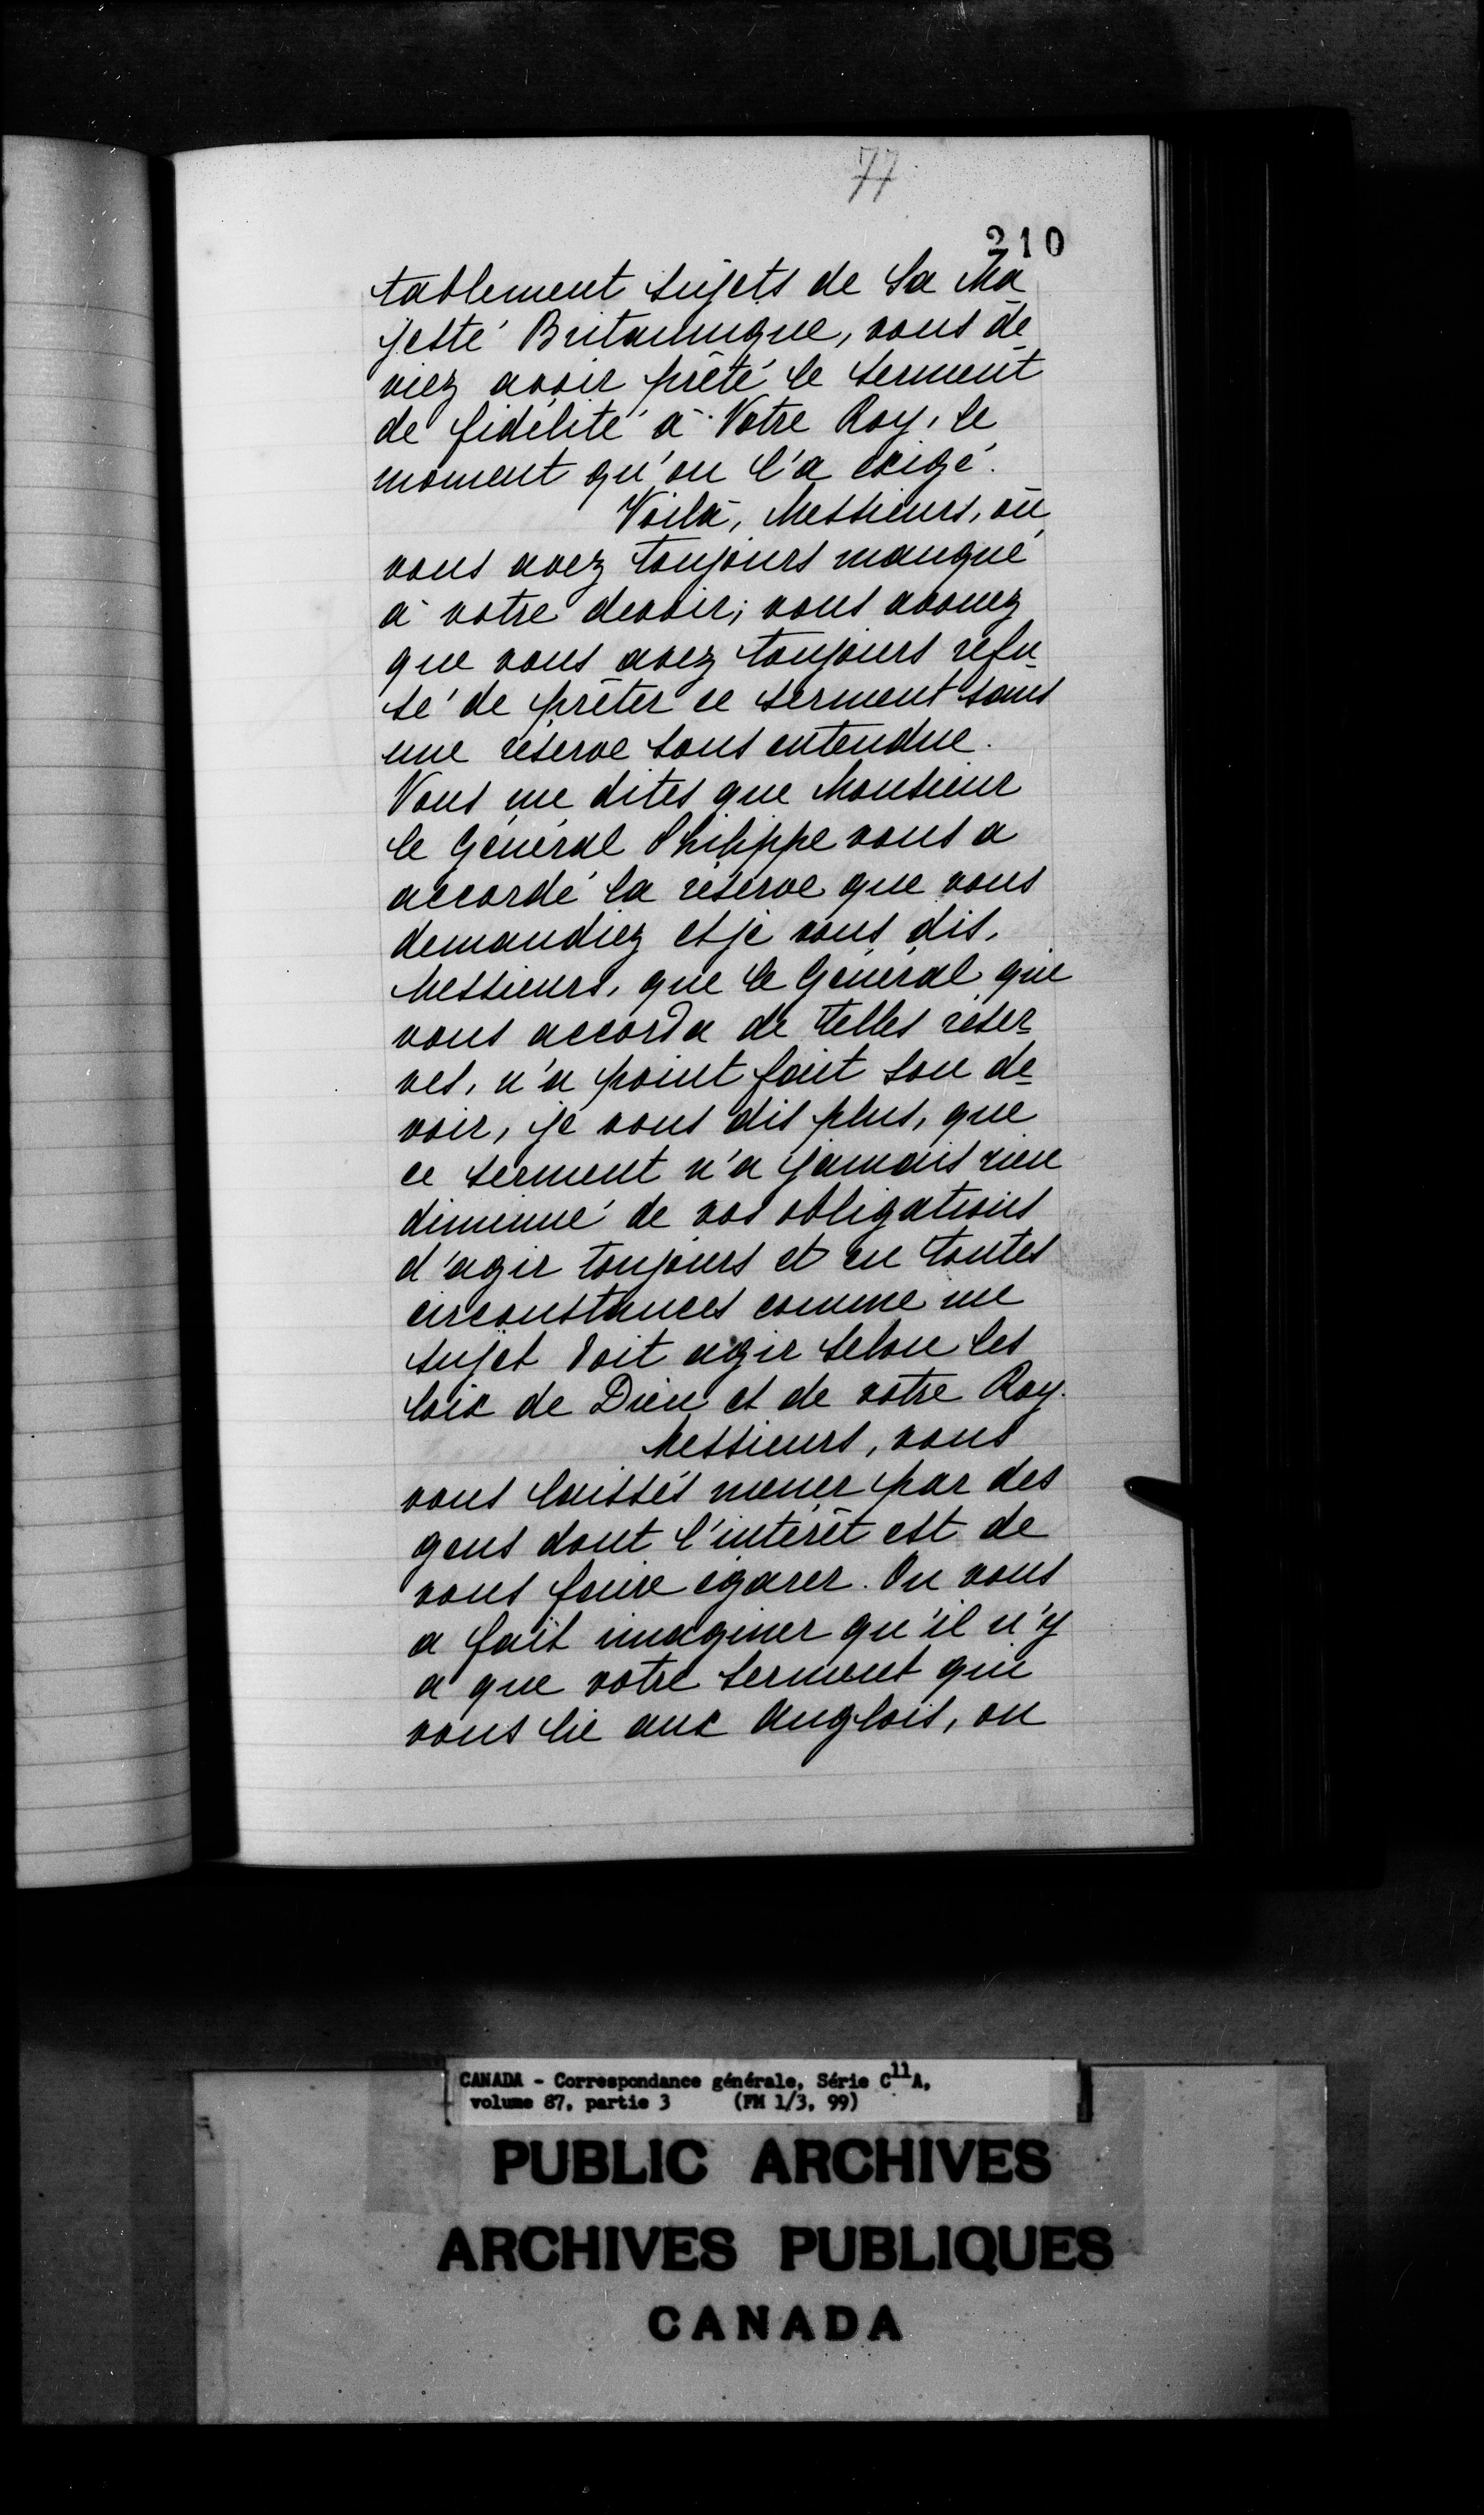 77
210
tablement sujets de Sa Ma
jesté Britannique, vous de
viez avoir prêté le serment
de fidélité à Votre Roy, le
moment qu'on l'a exigé.
Voilà, Messieurs, où
vous avez toujours manqué
à votre devoir; vous avouez
que vous avez toujours refu
sé de prêter ce serment sans
une réserve sous entendue.
Vous me dites que Monsieur
le Général Philippe vous a
accordé la réserve que vous
demandiez et je vous dis,
Messieurs, que le Général qui
vous accorda de telles réser-
ves, n'a point fait son de-
voir, je vous dis plus, que
ce serment n'a jamais rien
diminué de vos obligations
d'agir toujours et en toutes
circonstances comme un
sujet doit agir selon les
loix de Dieu et de votre Roy.
Messieurs, vous
vous laissés mener par des
gens dont l'intérêt est de
vous faire égarer. On vous
a fait imaginer qu'il n'y
a que votre serment qui
vous lie aux Anglois, on
CANADA - Correspondance générale, Série C11A,
volume 87, partie 3 (FM 1/3, 99)
PUBLIC ARCHIVES
ARCHIVES PUBLIQUES
CANADA